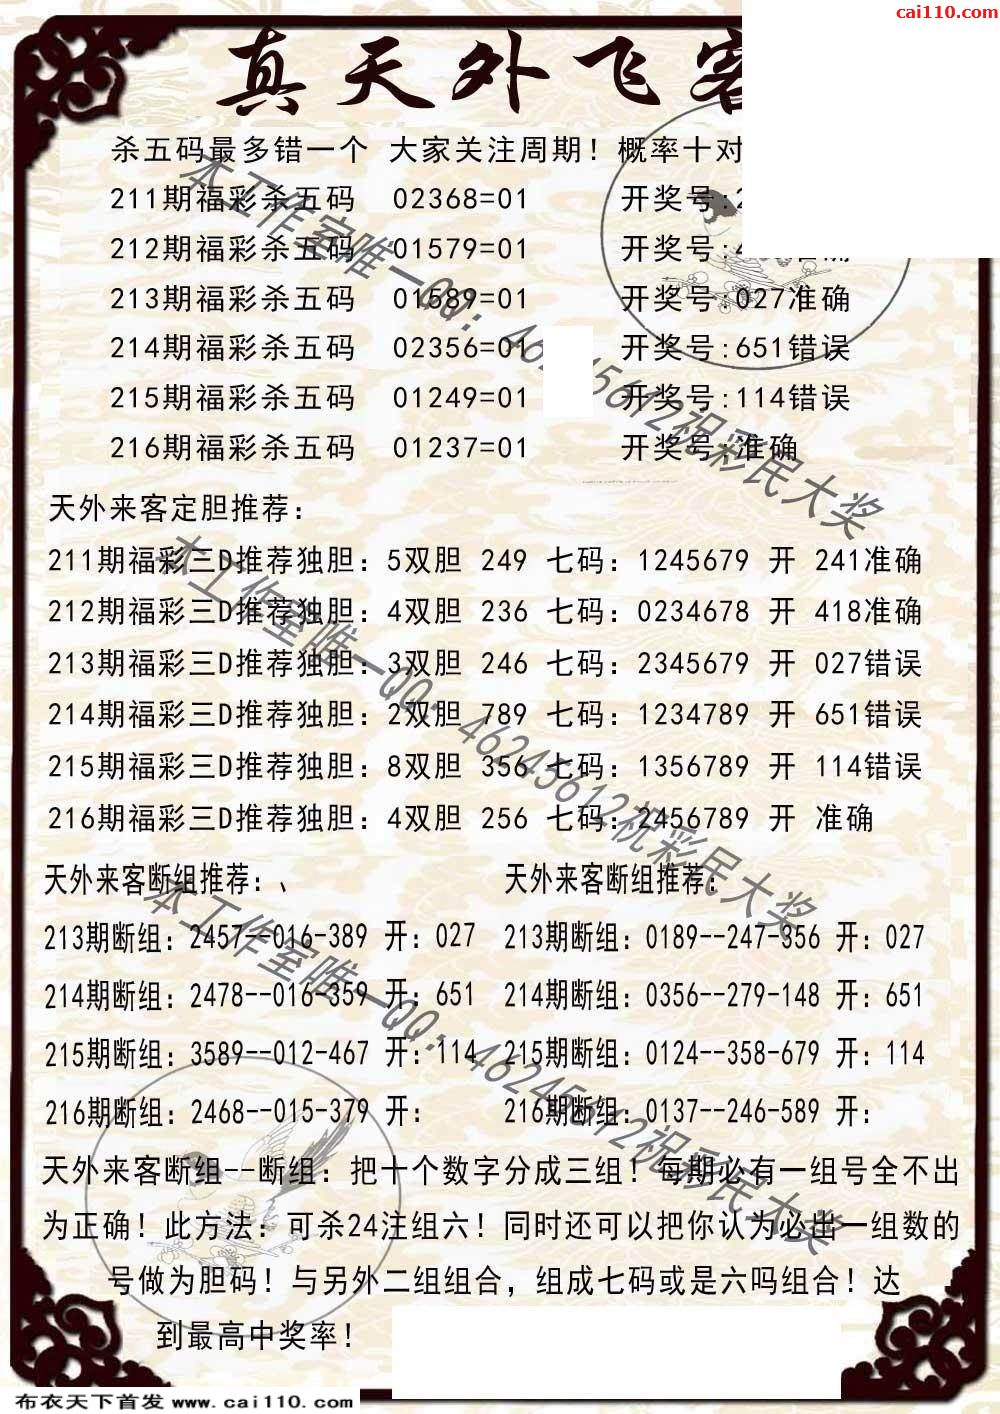 cai110.com
真天外飞客
杀五码最多错一个 大家关注周期！概率十对
211期福彩杀五码 02368=01 开奖号:2
212期福彩杀五码 01579=01 开奖号:4 准确
213期福彩杀五码 01589=01 开奖号:027准确
214期福彩杀五码 02356=01 开奖号:651错误
215期福彩杀五码 01249=01 开奖号:114错误
216期福彩杀五码 01237=01 开奖号:准确
天外来客定胆推荐：
211期福彩三D推荐独胆：5双胆 249 七码：1245679 开 241准确
212期福彩三D推荐独胆：4双胆 236 七码：0234678 开 418准确
213期福彩三D推荐独胆：3双胆 246 七码：2345679 开 027错误
214期福彩三D推荐独胆：2双胆 789 七码：1234789 开 651错误
215期福彩三D推荐独胆：8双胆 356 七码：1356789 开 114错误
216期福彩三D推荐独胆：4双胆 256 七码：2456789 开 准确
天外来客断组推荐：、 天外来客断组推荐：
213期断组：2457--016-389 开：027 213期断组：0189--247-356 开：027
214期断组：2478--016-359 开：651 214期断组：0356--279-148 开：651
215期断组：3589--012-467 开：114 215期断组：0124--358-679 开：114
216期断组：2468--015-379 开： 216期断组：0137--246-589 开：
天外来客断组--断组：把十个数字分成三组！每期必有一组号全不出
为正确！此方法：可杀24注组六！同时还可以把你认为必出一组数的
号做为胆码！与另外二组组合，组成七码或是六吗组合！达
到最高中奖率！
本工作室唯一QQ：46245612祝彩民大奖
本工作室唯一QQ：46245612祝彩民大奖
本工作室唯一QQ：46245612祝彩民大奖
布衣天下首发 www.cai110.com